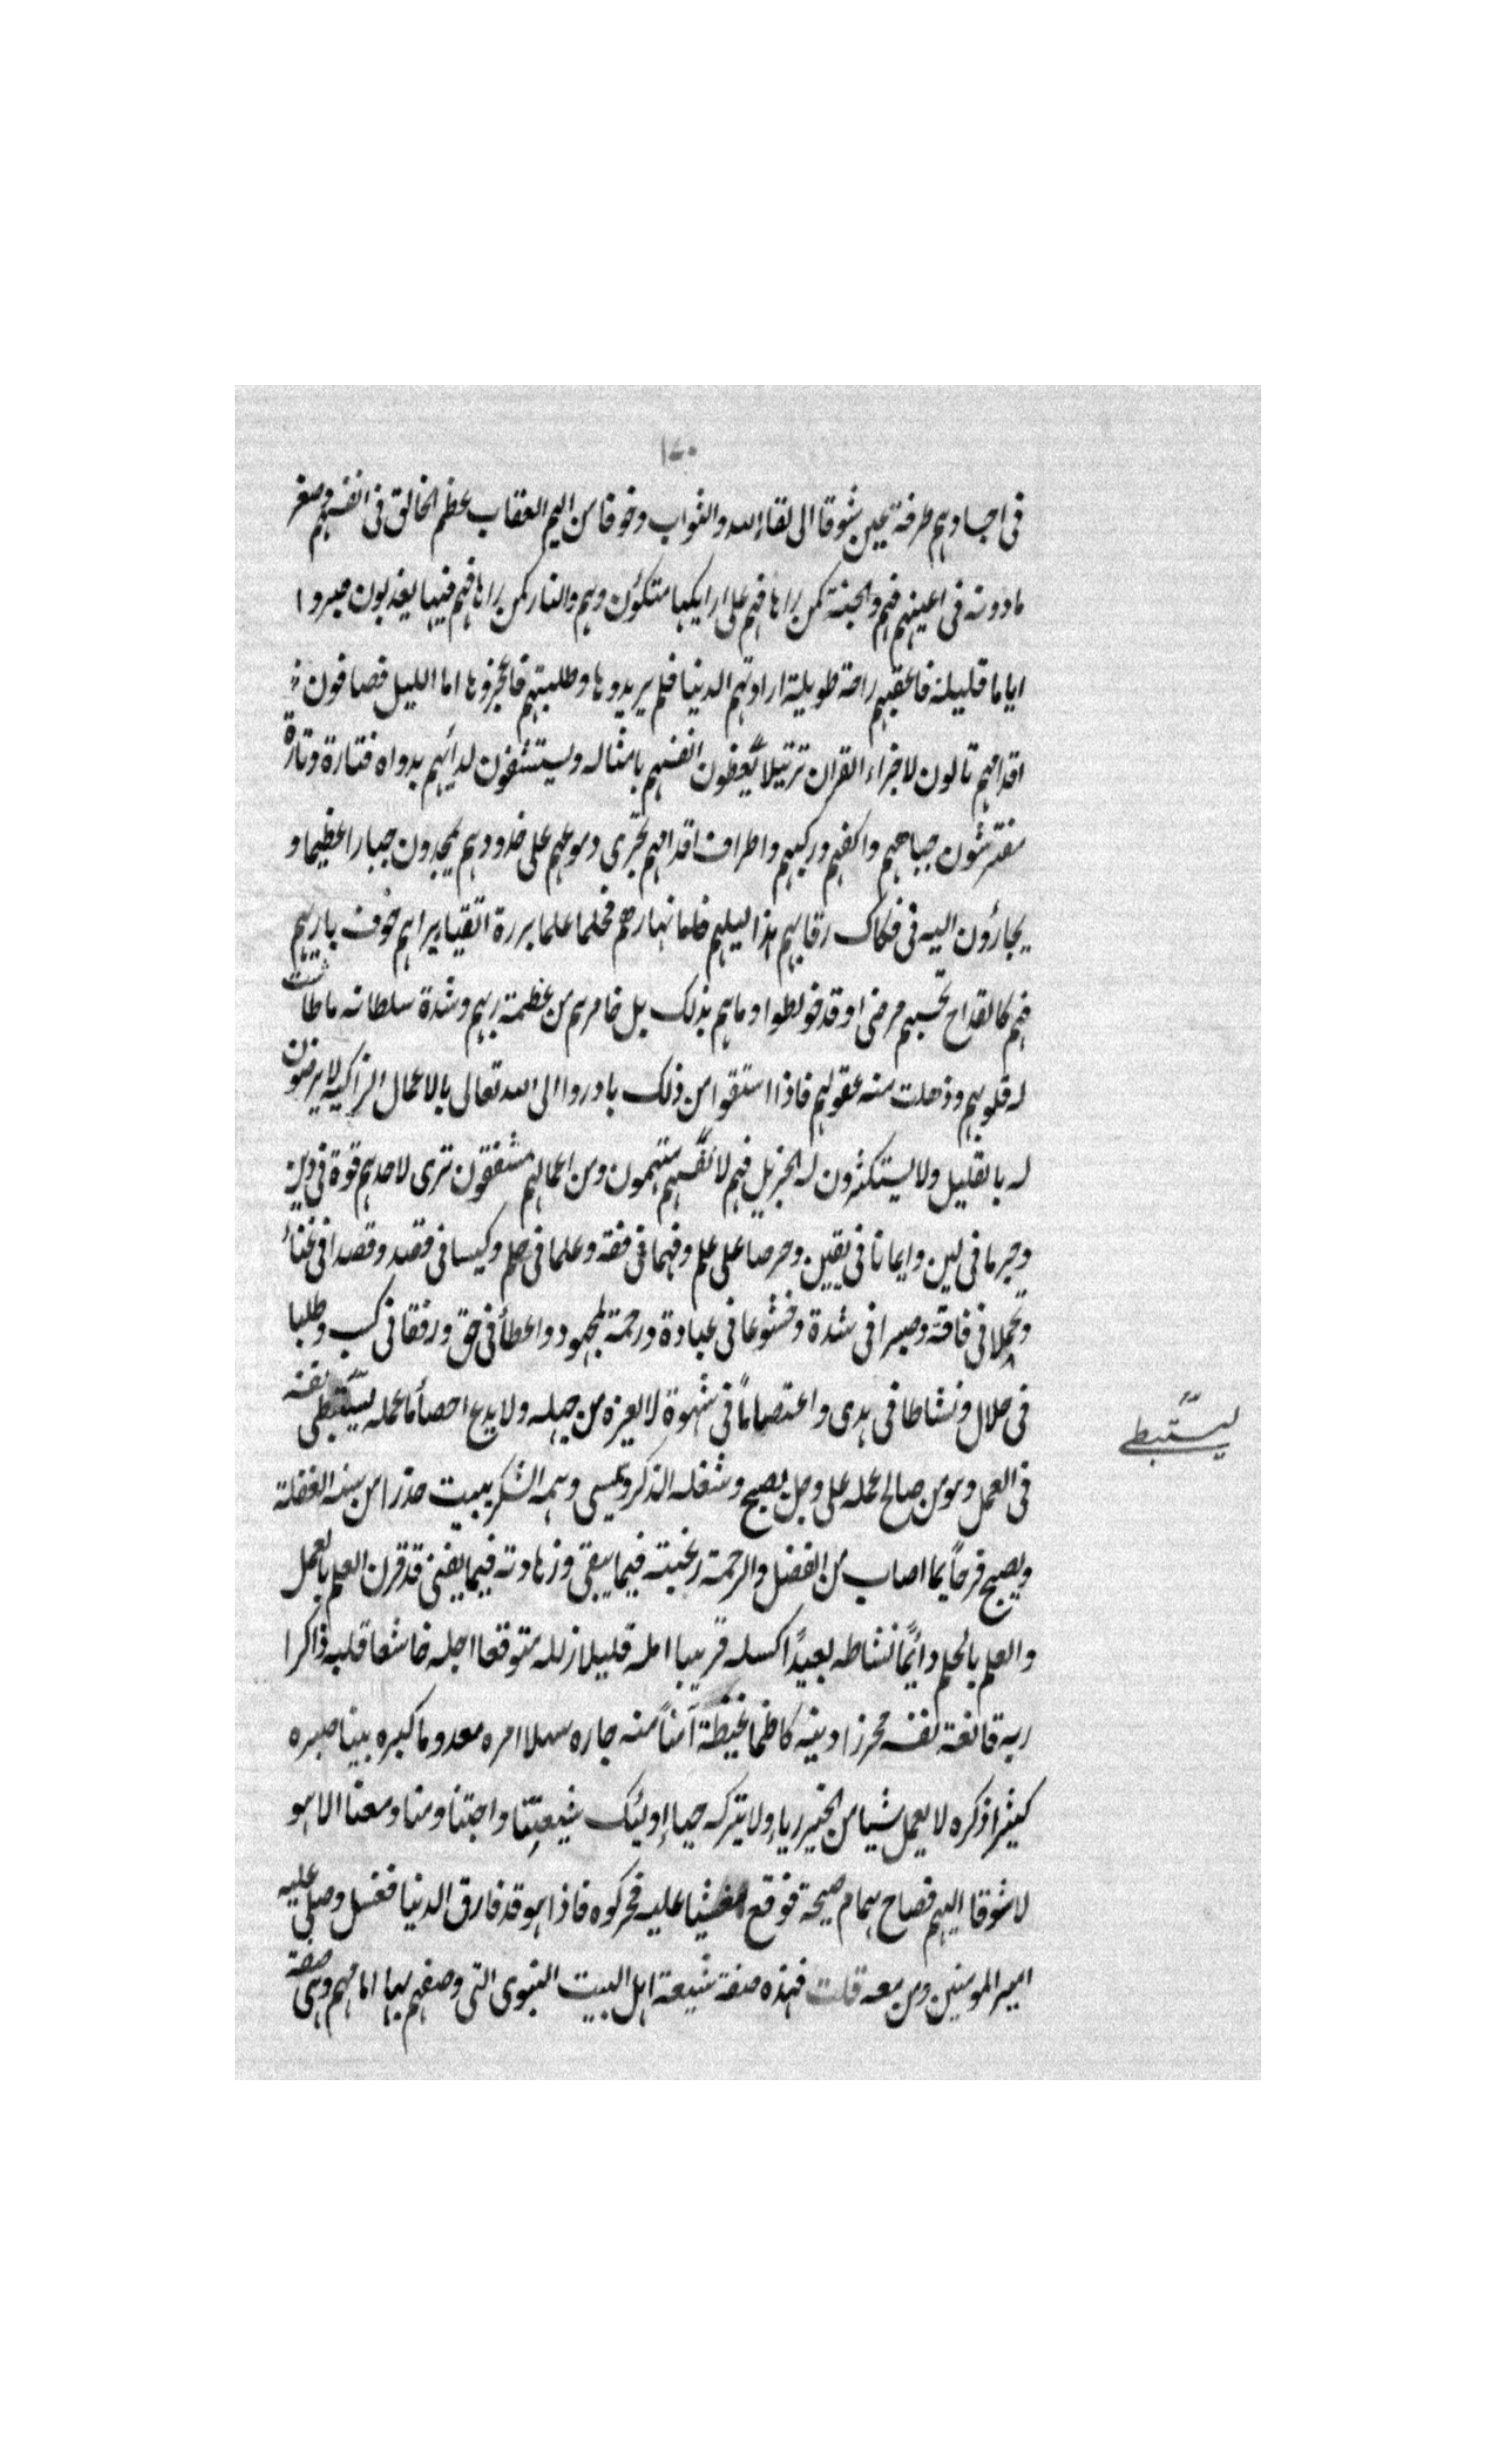 ١٤٠
فى اجسادهم طرفة عين شوقا الى لقاء الله والثواب وخوفا من اليم العقاب عظم الخالق فى انفسهم وصغر
مادونه فى اعينهم فهم والجنة كمن راها فهم على ارايكها متكؤن وهم والنار كمن راها فهم فيها يعذبون صبروا
اياما قليلة فاعقبهم راحة طويلة ارادتهم الدنيا فلم يريدوها وطلبتهم فاعجزوها اما الليل فصافون
اقدامهم تالون لاجزاء القران ترتيلا يعظون انفسهم بامثاله ويستشفون لدائهم بدواه فتارة وتارة
مفترشون جباههم واكفهم وركبهم واطراف اقدامهم تجرى دموعهم على خدودهم يمجدون جبارا عظيما و
يجارؤن اليه فى فكاك رقابهم هذا ليلهم فاما نهارهم فحلما علما بررة اتقيا براهم خوف باريهم
فهم كالقداح تحسبهم مرضى او قد خولطوا وما هم بذلك بل خامرهم من عظمة ربهم وشدة سلطانه ماطاشت
له قلوبهم وذهلت منه عقولهم فاذا استقوا من ذلك بادروا الى الله تعالى بالاعمال الزاكية لا يرضون
له بالقليل ولا يستكثرون له الجزيل فهم لانفسهم متهمون ومن اعمالهم مشفقون ترى لاحدهم قوة فى دين
وحزما فى لين وايمانا فى يقين وحرصا على علم وفهما فى فقه وعلما فى حلم وكيسا فى قصد وقصدا فى غناء
وتجملا فى فاقة وصبرا فى شدة وخشوعا فى عبادة ورحمة لمجهود واعطأ فى حق ورفقا فى كسب وطلبا
فى حلال ونشاطا فى هدى واعتصاما فى شهوة لا يعزه من جهله ولا يدع احصأ ما عمله يستبطى نفسه
ليستبطى
فى العمل وهو من صالح عمله على وجل يصبح وشغله الذكر ويمسى وهمه الشكر يبيت حذرا من سنه الغفلة
ويصبح فرحاً بما اصاب من الفضل والرحمة رغبته فيما يبقى وزهادته فيما يفنى قد قرن العلم بالعمل
والعلم بالحلم دائماً نشاطه بعيداً كسله قريبا امله قليلا زلله متوقعا اجله خاشعا قلبه ذاكرا
ربه قانعة نفسه محرزا دينه كاظما غيظه آمناً منه جاره سهلا امره معدوما كبره بينا صبره
كثيرا ذكره لا يعمل شيا من الخير رياء ولا يتركه حياء اوليك شيعتنا واحبتنا ومنا ومعنا الا هو
لا شوقا اليهم فصاح همام صيحة فوقع مغشيا عليه فحركوه فاذا هو قد فارق الدنيا فغسل وصلى عليه
امير المومنين ومن معه قلت فهذه صفة شيعة اهل البيت النبوى التى وصفهم بها امامهم وهى صفة